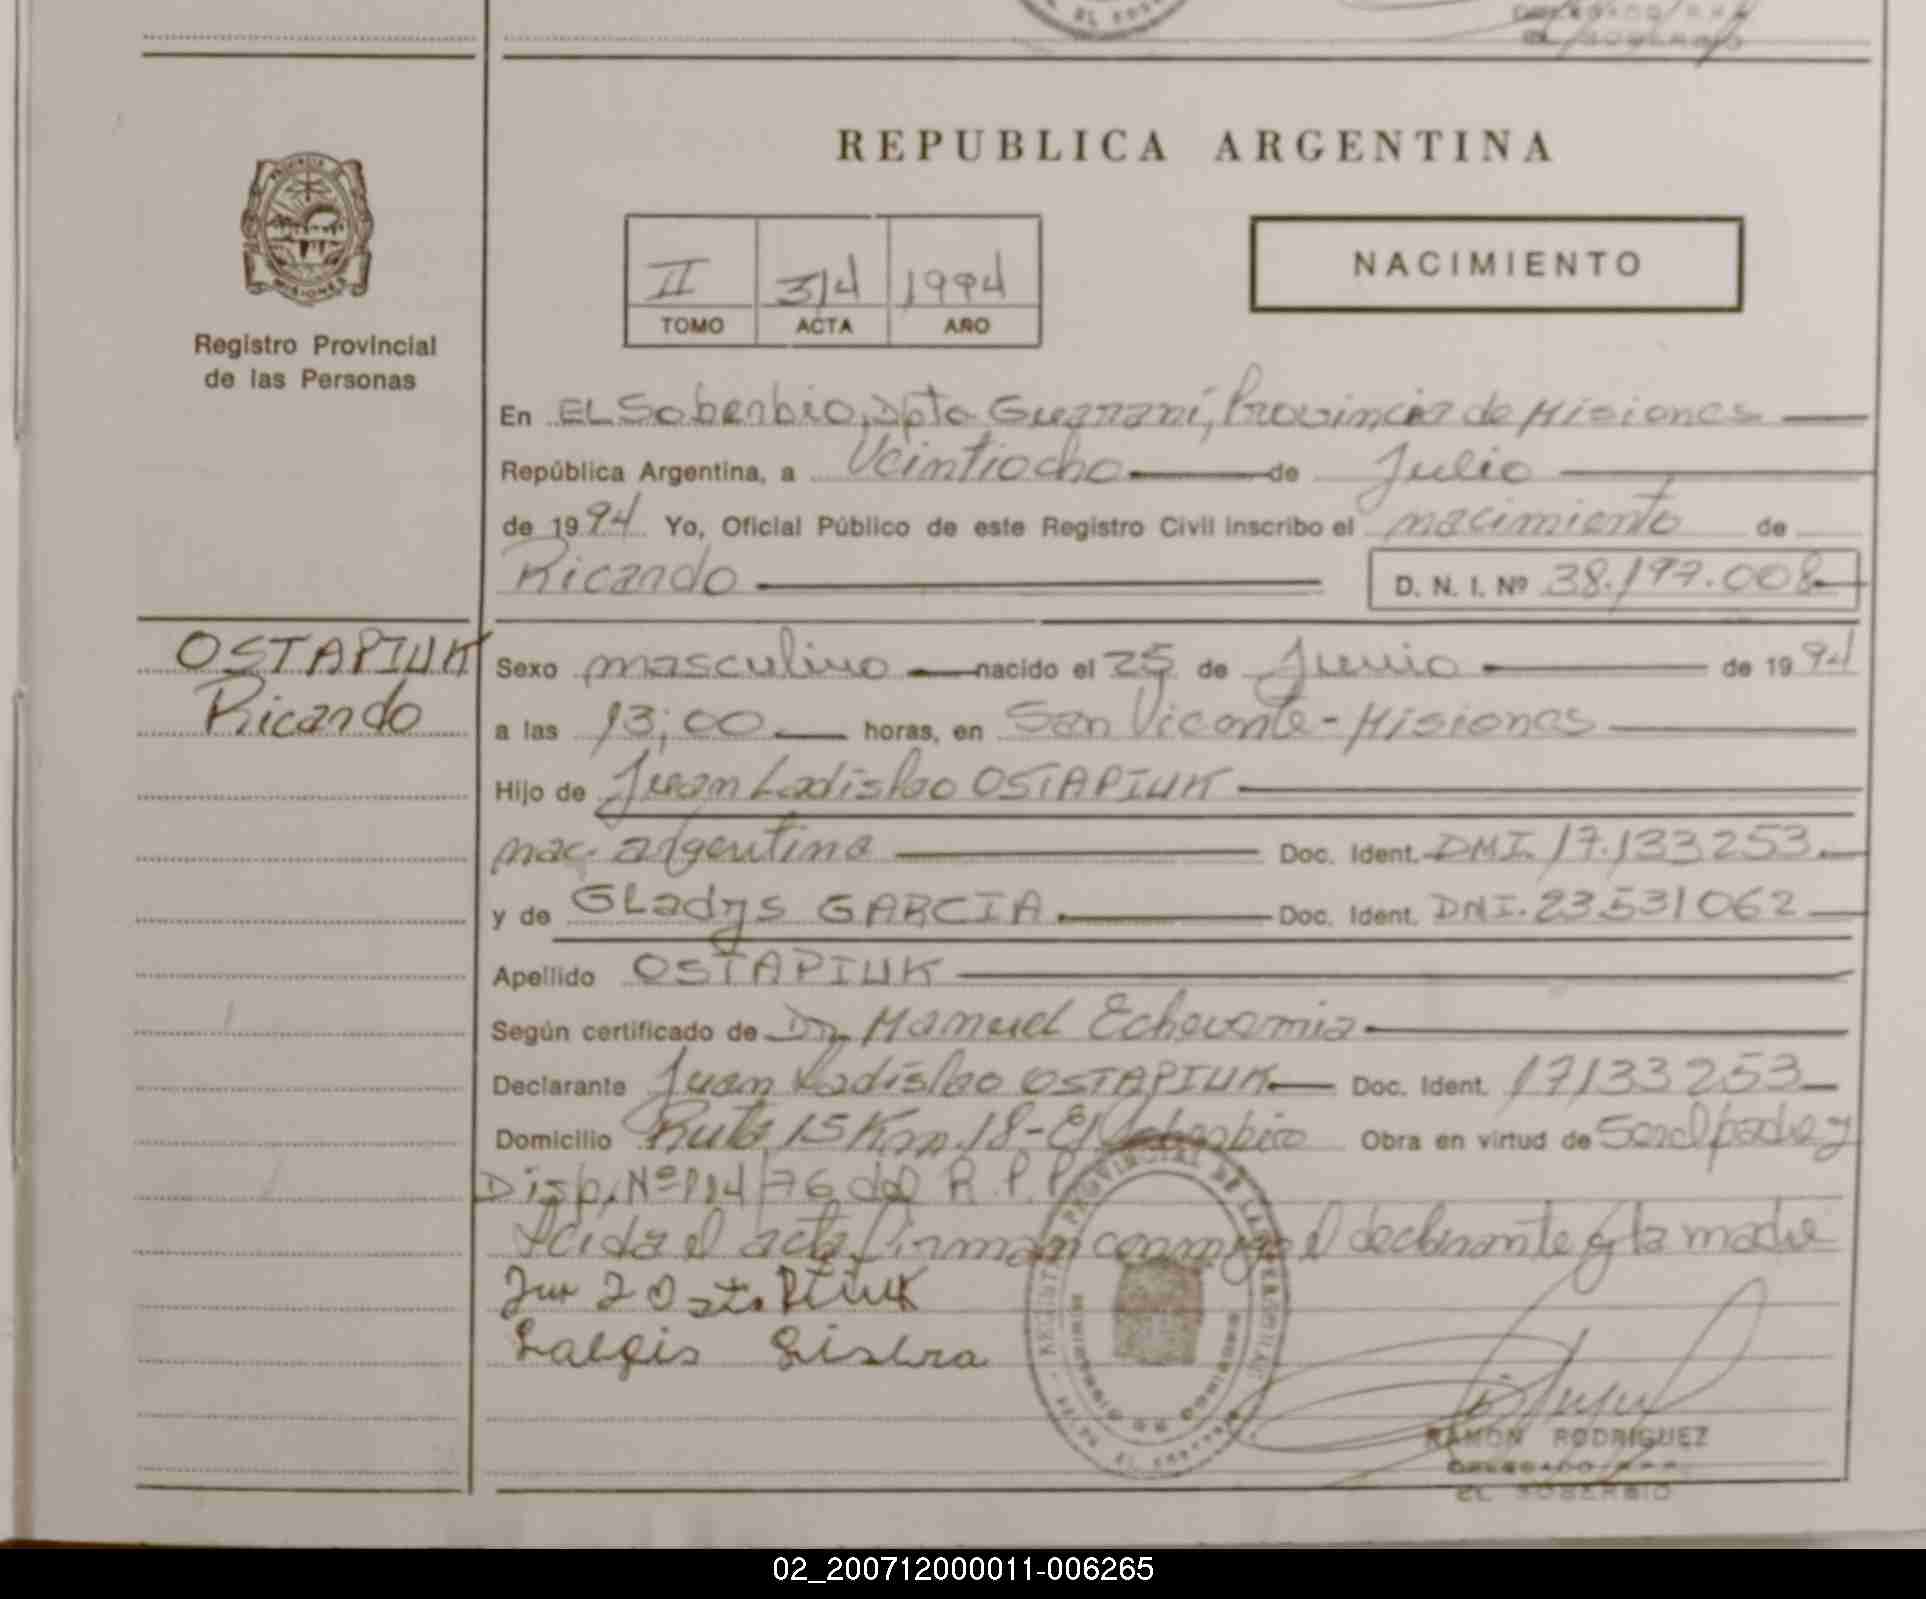 EL SOBERBIO
REPUBLICA ARGENTINA
PROVINCIA
MISIONES
Registro Provincial
de las Personas
II 314 1994
TOMO ACTA AÑO
NACIMIENTO
En EL Soberbio, Dpto Guaraní, Provincia de Misiones
República Argentina, a Veintiocho de Julio
de 1994 Yo, Oficial Público de este Registro Civil inscribo el nacimiento de
Ricardo D. N. I. Nº 38.197.008
OSTAPIUK
Ricardo
Sexo masculino nacido el 25 de Junio de 1994
a las 13;00 horas, en San Vicente - Misiones
Hijo de Juan Ladislao OSTAPIUK
nac. argentina Doc. Ident. DNI. 17.133253
y de GLadys GARCIA Doc. Ident. DNI. 23531062
Apellido OSTAPIUK
Según certificado de Dr. Manuel
Declarante Juan Ladislao OSTAPIUK Doc. Ident. 17133253
Domicilio Ruta 15 Km. 18 - El Soberbio Obra en virtud de Ser el padre y
Disp. Nº 114/76 del R.P.P
Leida el acta firman conmigo el declarante y la madre
REGISTRO PROVINCIAL DE LAS PERSONAS
RAMON RODRIGUEZ
DELEGADO
EL SOBERBIO
02_200712000011-006265